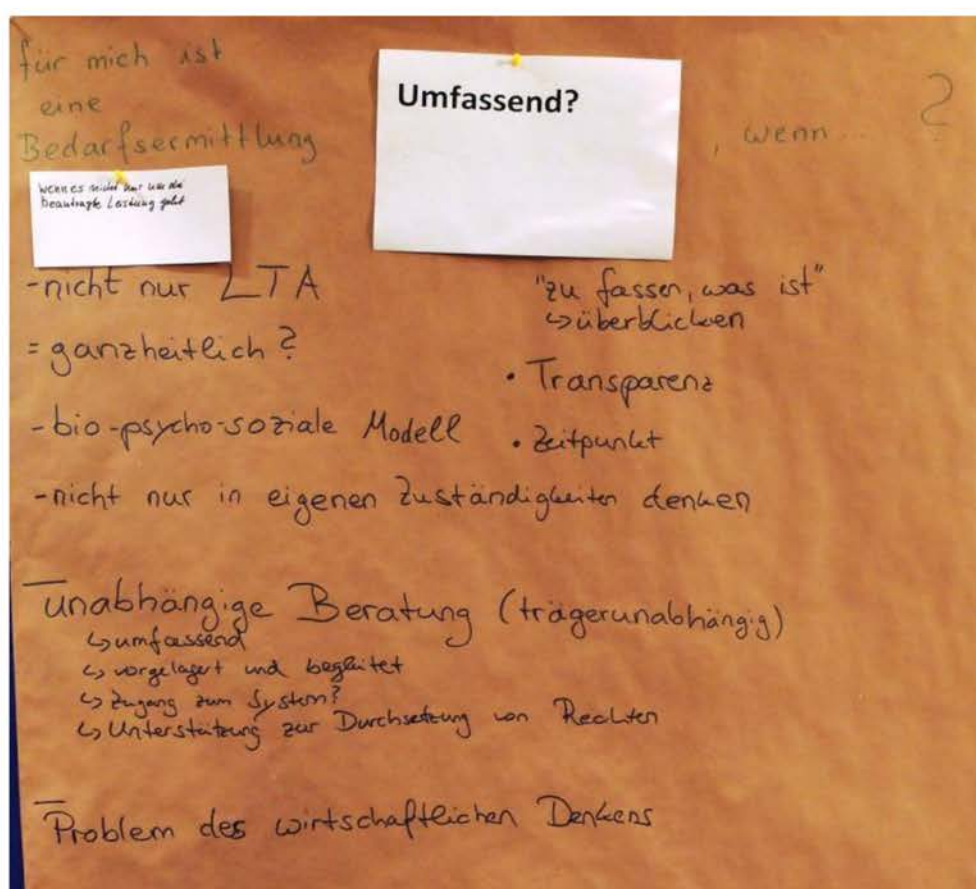 für mich ist
eine
Bedarfsermittlung
Umfassend?
, wenn... ?
wenn es nicht nur um die
beantragte Leistung geht
-nicht nur LTA
= ganzheitlich?
-bio-psycho-soziale Modell
"zu fassen, was ist"
↳ überblicken
• Transparenz
• Zeitpunkt
-nicht nur in eigenen Zuständigkeiten denken
- unabhängige Beratung (trägerunabhängig)
↳ umfassend
↳ vorgelagert und begleitet
↳ Zugang zum System?
↳ Unterstützung zur Durchsetzung von Rechten
- Problem des wirtschaftlichen Denkens